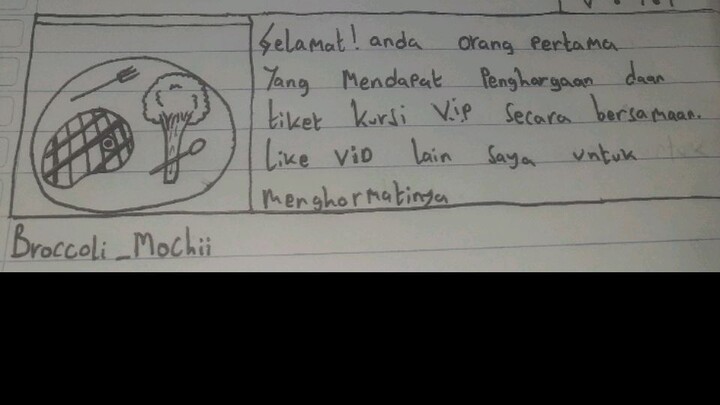 Selamat! anda orang pertama
Yang Mendapat Penghargaan daan
tiket kursi V.i.P Secara bersamaan.
Like ViD lain Saya untuk
Menghormatinya
Broccoli_Mochii